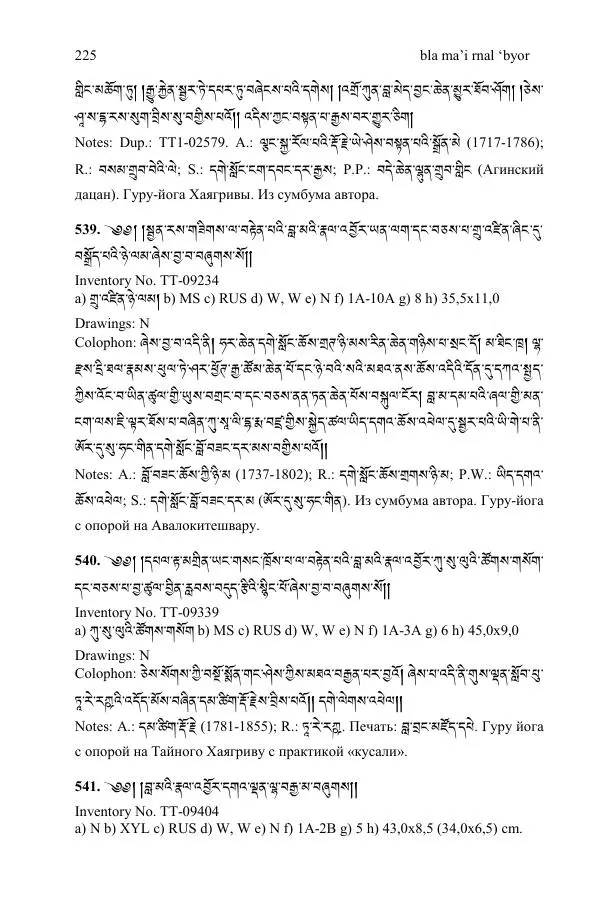 225 bla ma’i rnal ‘byor
གླིང་མཆོག་ཏུ། །རྒྱུ་རྐྱེན་སྦྱར་ཏེ་དཔར་དུ་བཞེངས་པའི་དགེས། །འགྲོ་ཀུན་བླ་མེད་བྱང་ཆེན་མྱུར་ཐོབ་ཤོག། །ཅེས་
ཤཱ་ས་དྷ་རས་སུག་བྲིས་སུ་བགྱིས་པའོ།། འདིས་ཀྱང་བསྟན་པ་རྒྱས་བར་གྱུར་ཅིག།
Notes: Dup.: TT1-02579. A.: ལྕང་སྐྱ་རོལ་པའི་རྡོ་རྗེ་ཡེ་ཤེས་བསྟན་པའི་སྒྲོན་མེ (1717-1786);
R.: བསམ་གྲུབ་བེའི་ལེ; S.: དགེ་སློང་ངག་དབང་དར་རྒྱས; P.P.: བདེ་ཆེན་ལྷུན་གྲུབ་གླིང (Агинский
дацан). Гуру-йога Хаягривы. Из сумбума автора.
539. ༄༅། །སྤྱན་རས་གཟིགས་ལ་བརྟེན་པའི་བླ་མའི་རྣལ་འབྱོར་ཡན་ལག་དང་བཅས་པ་གྲུ་འཛིན་ཞིང་དུ་
བསྒྲོད་པའི་ཉེ་ལམ་ཞེས་བྱ་བ་བཞུགས་སོ།།
Inventory No. TT-09234
a) གྲུ་འཛིན་ཉེ་ལམ། b) MS c) RUS d) W, W e) N f) 1A-10A g) 8 h) 35,5x11,0
Drawings: N
Colophon: ཞེས་བྱ་བ་འདི་ནི། ཧར་ཆེན་དགེ་སློང་ཆོས་གྲགས་ཉི་མས་རིན་ཆེན་གཉིས་པ་སྲང་དོ། མ་ཐིང་ཁ། ལྷ་
རྫས་དྲི་ཐལ་རྣམས་ཕུལ་ཏེ་ཤར་ཕྱོགས་རྒྱ་མཚོ་ཆེན་པོ་དང་ཉེ་བའི་སའི་མཐའ་ནས་ཆོས་འདིའི་དོན་དུ་དཀའ་སྤྱད་
ཀྱིས་འོང་བ་ཡིན་ཚུལ་གྱི་ཡུས་བགྲང་བ་དང་བཅས་ནན་ཏན་ཆེན་པོས་བསྐུལ་ངོར། བླ་མ་དམ་པའི་ཞལ་གྱི་མན་
ངག་ལས་ཇི་ལྟར་ཐོས་པ་བཞིན་ཀུ་སཱ་ལི་དྷརྨ་བཛྲ་གྱིས་སྐྱེད་ཚལ་ཡིད་དགའ་ཆོས་འཕེལ་དུ་སྦྱར་པའི་ཡི་གེ་པ་ནི་
ཨོར་དུ་སུ་ཧང་གིན་དགེ་སློང་བློ་བཟང་དར་མས་བགྱིས་པའོ།།
Notes: A.: བློ་བཟང་ཆོས་ཀྱི་ཉི་མ (1737-1802); R.: དགེ་སློང་ཆོས་གྲགས་ཉི་མ; P.W.: ཡིད་དགའ་
ཆོས་འཕེལ; S.: དགེ་སློང་བློ་བཟང་དར་མ (ཨོར་དུ་སུ་ཧང་གིན). Из сумбума автора. Гуру-йога
с опорой на Авалокитешвару.
540. ༄༅། །དཔལ་རྟ་མགྲིན་ཡང་གསང་ཁྲོས་པ་ལ་བརྟེན་པའི་བླ་མའི་རྣལ་འབྱོར་ཀུ་སུ་ལུའི་ཚོགས་གསོག་
དང་བཅས་པ་བྱ་ཚུལ་བྱིན་རླབས་བདུད་རྩིའི་སྙིང་པོ་ཞེས་བྱ་བ་བཞུགས་སོ།།
Inventory No. TT-09339
a) ཀུ་སུ་ལུའི་ཚོགས་གསོག b) MS c) RUS d) W, W e) N f) 1A-3A g) 6 h) 45,0x9,0
Drawings: N
Colophon: ཅེས་སོགས་ཀྱི་བསྔོ་སྨོན་གང་ཤེས་ཀྱིས་མཐའ་བརྒྱན་པར་བྱའོ། ཞེས་པ་འདི་ནི་གུས་ལྡན་སློབ་བུ་
ཏཱ་རེ་རཀྵའི་འདོད་མོས་བཞིན་དམ་ཚིག་རྡོ་རྗེས་བྲིས་པའོ།། དགེ་ལེགས་འཕེལ།།
Notes: A.: དམ་ཚིག་རྡོ་རྗེ (1781-1855); R.: ཏཱ་རེ་རཀྵ. Печать: བླ་བྲང་མཛོད་དཔེ. Гуру йога
с опорой на Тайного Хаягриву с практикой «кусали».
541. ༄༅། །བླ་མའི་རྣལ་འབྱོར་དགའ་ལྡན་ལྷ་བརྒྱ་མ་བཞུགས།།
Inventory No. TT-09404
a) N b) XYL c) RUS d) W, W e) N f) 1A-2B g) 5 h) 43,0x8,5 (34,0x6,5) cm.